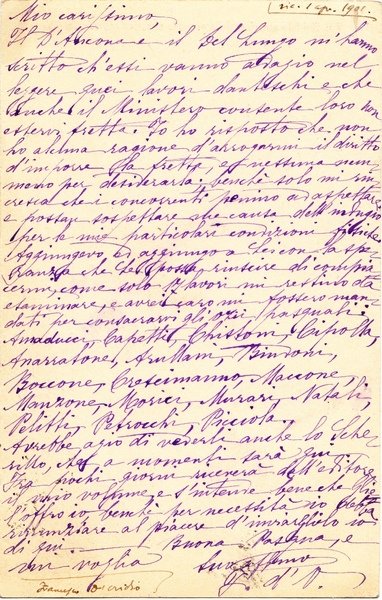 ric. 1 apr. 1901.
Mio carissimo,
Il D'Ancona e il Del Lungo m'hanno
scritto ch'essi vanno adagio nel
leggere quei lavori danteschi e che
anche il Ministero consente loro non
esservi fretta. Io ho risposto che non
ho alcuna ragione d'arrogarmi il diritto
d'imporre la fretta e nessuna nem-
meno per desiderarla: benchè solo mi rin-
cresca che i concorrenti penino ad aspettare
e possan sospettare che causa dell'indugio
per le mie particolari condizioni fisiche.
Aggiungevo, ed aggiungo a Lei con la spe-
ranza che Le possa riuscire di compia-
cermi, come solo 17 lavori mi restino da
esaminare, e avrei caro mi fossero man-
dati per consacrarvi gli ozi pasquali:
Amaducci, Capetti, Chistoni, Cipolla,
Anarratone, Arullani, Bindoni,
Boccone, Crescimanno, Maccone,
Manzone, Morici, Murari, Natali,
Pelitti, Petrocchi, Picciola.
Avrebbe agio di vederli anche lo Sche-
rillo, che a momenti sarà qui.
Fra pochi giorni riceverà dall'editore
il vario volume, e s'intende bene che
l'offro io, benchè per necessità io
rinunziare al piacere d'inviarglielo io
di qui. Buona Pasqua, e
mi voglia
Suo
F. d'O.
Francesco